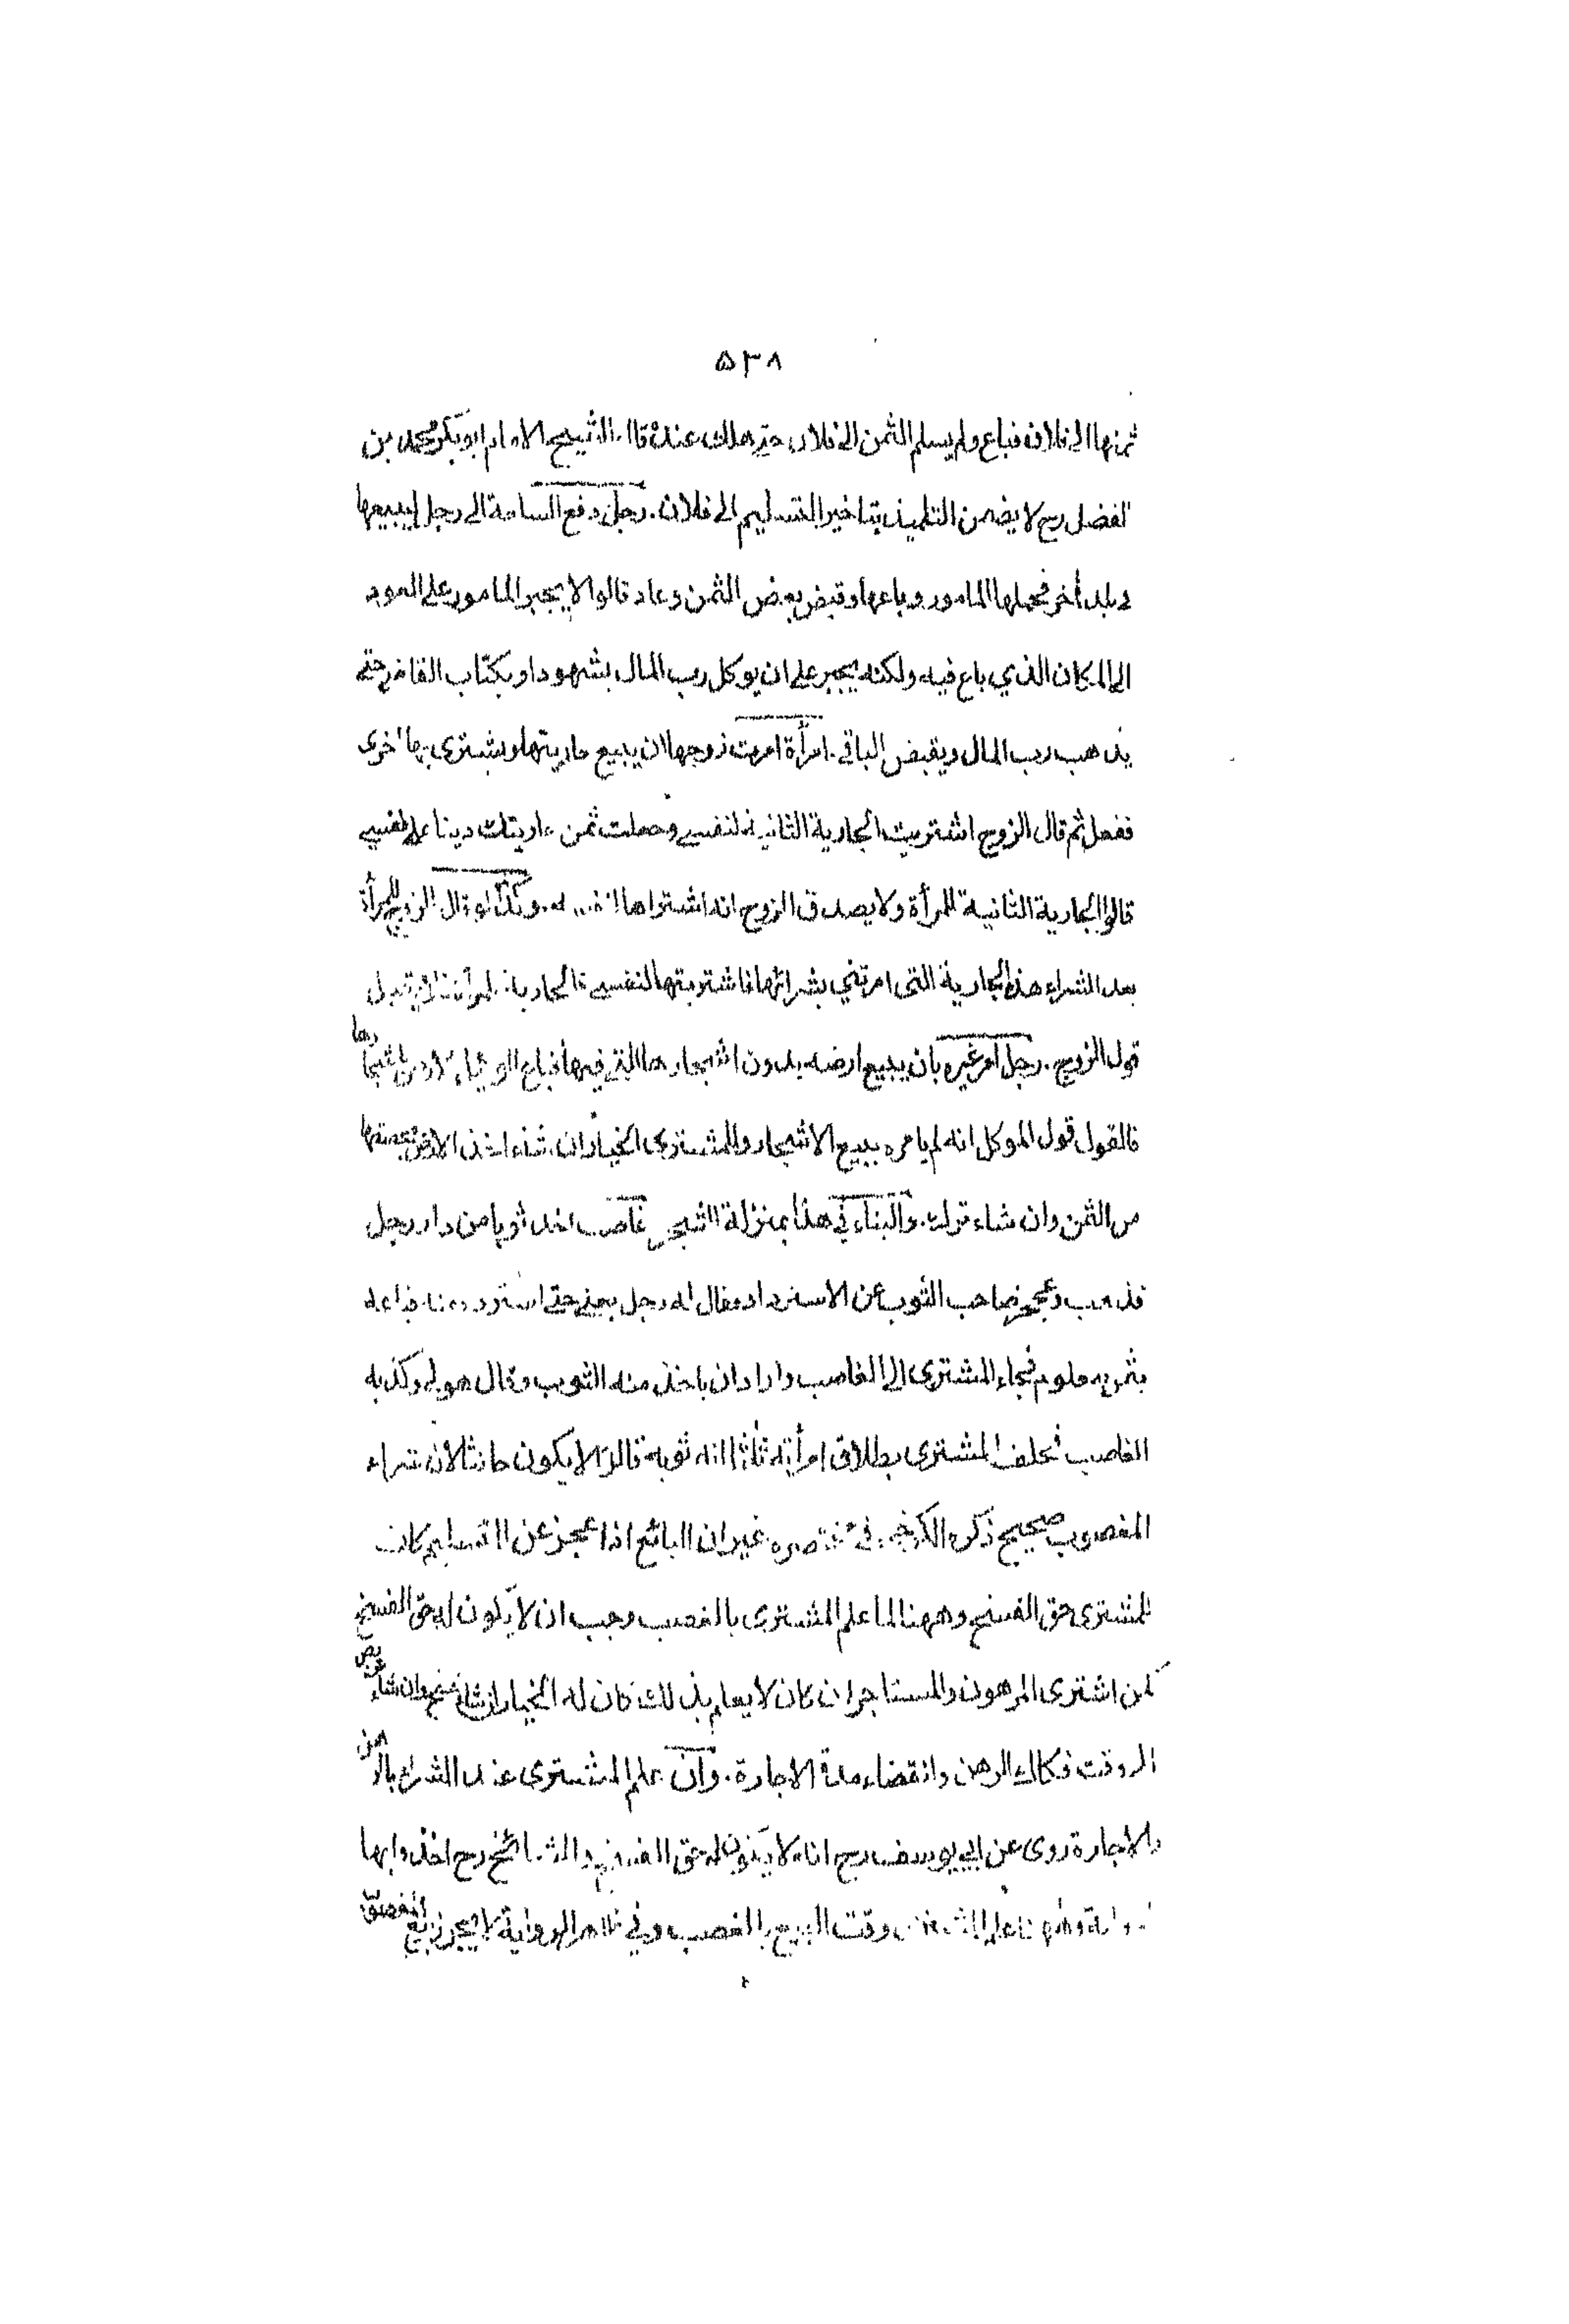 ٥٣٨
ثمنها الى فلان فباع ولم يسلم الثمن الى فلان حتى هلك عنده قال الشيخ الامام ابو بكر محمد بن
الفضل رح لا يضمن التلميذ بتاخير التسليم الى فلان. رجل دفع السلعة الى رجل ليبيعها
في بلد أخر فحملها المامور وباعها وقبض بعض الثمن وعاد قالوا لا يجبر المامور على العود
الى المكان الذي باع فيه ولكنه يجبر على ان يوكل رب المال بشهود او بكتاب القاضي حتى
يذهب رب المال ويقبض الباقي. امرأة امرت زوجها ان يبيع جاريتها ويشترى بها اخرى
ففعل ثم قال الزوج اشتريت الجارية الثانية لنفسي وجعلت ثمن جاريتك دينا على نفسي
قالوا الجارية الثانية للمرأة ولا يصدق الزوج انه اشتراها لنفسه. وكذا لو قال الزوج للمرأة
بعد الشراء هذه الجارية التى امرتني بشرائها فاشتريتها لنفسي فالجارية للمرأة ولا يقبل
قول الزوج. رجل امر غيره بان يبيع ارضه بدون اشجارها التي فيها فباع الوكيل الارض باشجارها
فالقول قول الموكل انه لم يامره ببيع الاشجار وللمشترى الخيار ان شاء اخذ الارض بحصتها
من الثمن وان شاء ترك. والبناء في هذا بمنزلة الشجر غاصب اخذ ثوبا من دار رجل
فذهب وعجز صاحب الثوب عن الاسترداد فقال له رجل بعني حتى استرد منه فباعه
بثمن معلوم فجاء المشترى الى الغاصب واراد ان ياخذ منه الثوب وقال هو لي وكذبه
الغاصب فحلف المشترى بطلاق امرأته ثلثا انه ثوبه قالوا لا يكون حانثا لان شراء
المغصوب صحيح ذكره الكرخي في مختصره غير ان البائع اذا عجز عن التسليم كان
للمشترى حق الفسخ وههنا لما علم المشترى بالغصب وجب ان لا يكون له حق الفسخ
كمن اشترى المرهون والمستاجر ان كان لا يعلم بذلك كان له الخيار ان شاء فسخ وان شاء تربص
الى وقت فكاك الرهن وانقضاء مدة الاجارة. وان علم المشترى عند الشراء بالرهن
والاجارة روى عن ابي يوسف رح انه لا يكون له حق الفسخ والمشائخ رح اخذوا بهذا
وقت البيع بالغصب وفي ظاهر الرواية لا يجوز بيع المغصوب